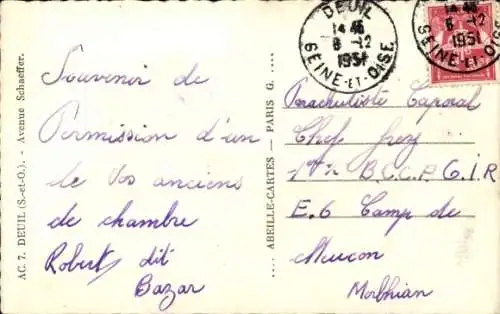 AC. 7. DEUIL (S.-et-O.). - Avenue Schaeffer.
Souvenir de
Permission d'un
de Vos anciens
de chambre
Robert dit
Bazar
.... ABEILLE-CARTES — PARIS G. ....
DEUIL
14 46
6 -12
1951
SEINE-ET-OISE
14 46
6 -12
1951
SEINE-ET-OISE
Parachutiste Caporal
Chef
B.C.C.P. G.I.R
E.6 Camp de
Meucon
Morbhian